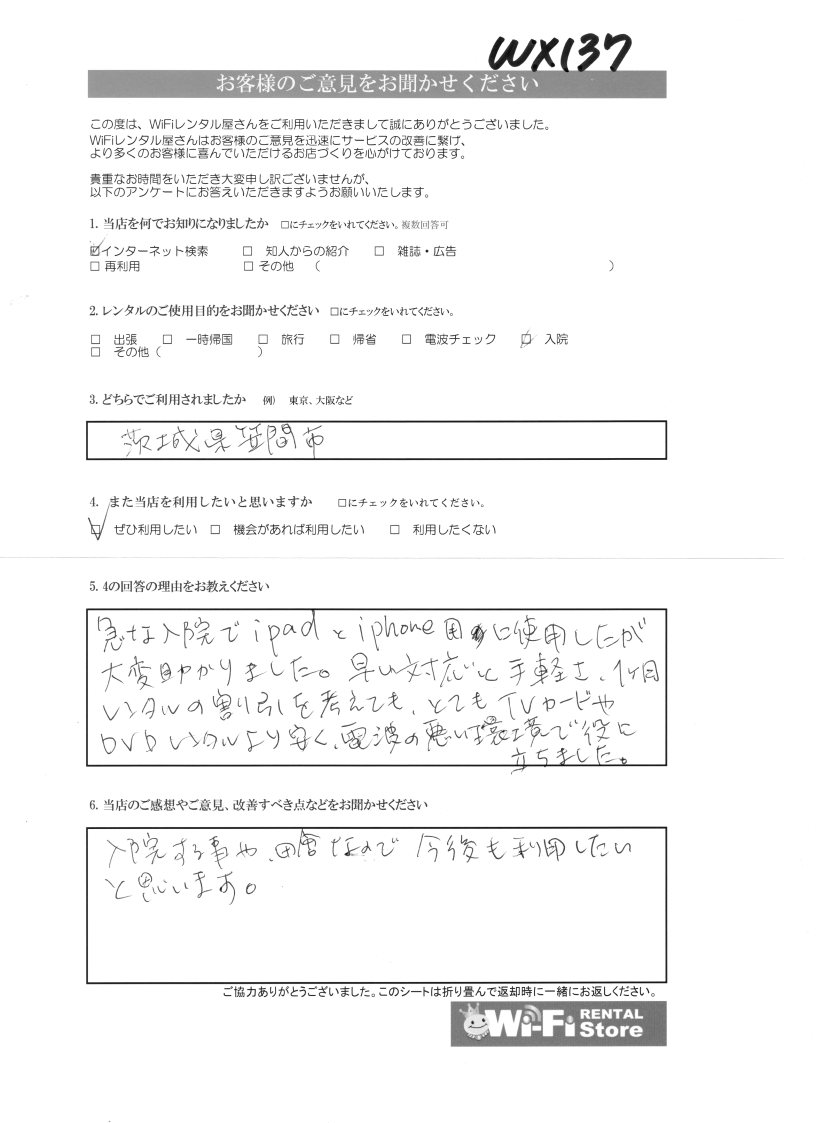 WX137
お客様のご意見をお聞かせください
この度は、WiFiレンタル屋さんをご利用いただきまして誠にありがとうございました。
WiFiレンタル屋さんはお客様のご意見を迅速にサービスの改善に繋げ、
より多くのお客様に喜んでいただけるお店づくりを心がけております。
貴重なお時間をいただき大変申し訳ございませんが、
以下のアンケートにお答えいただきますようお願いいたします。
1. 当店を何でお知りになりましたか □にチェックをいれてください。複数回答可
☑インターネット検索 □ 知人からの紹介 □ 雑誌・広告
□ 再利用 □ その他 ( )
2. レンタルのご使用目的をお聞かせください □にチェックをいれてください。
□ 出張 □ 一時帰国 □ 旅行 □ 帰省 □ 電波チェック ☑ 入院
□ その他 ( )
3. どちらでご利用されましたか 例) 東京、大阪など
茨城県笠間市
4. また当店を利用したいと思いますか □にチェックをいれてください。
☑ ぜひ利用したい □ 機会があれば利用したい □ 利用したくない
5. 4の回答の理由をお教えください
急な入院でipadとiphone用に使用したが
大変助かりました。早い対応と手軽さ、1ヶ月
レンタルの割り引を考えても、とてもTVカードや
DVDレンタルより安く、電波の悪い環境で役に
立ちました。
6. 当店のご感想やご意見、改善すべき点などをお聞かせください
入院する事や、田舎なので今後も利用したい
と思います。
ご協力ありがとうございました。このシートは折り畳んで返却時に一緒にお返しください。
Wi-Fi RENTAL Store